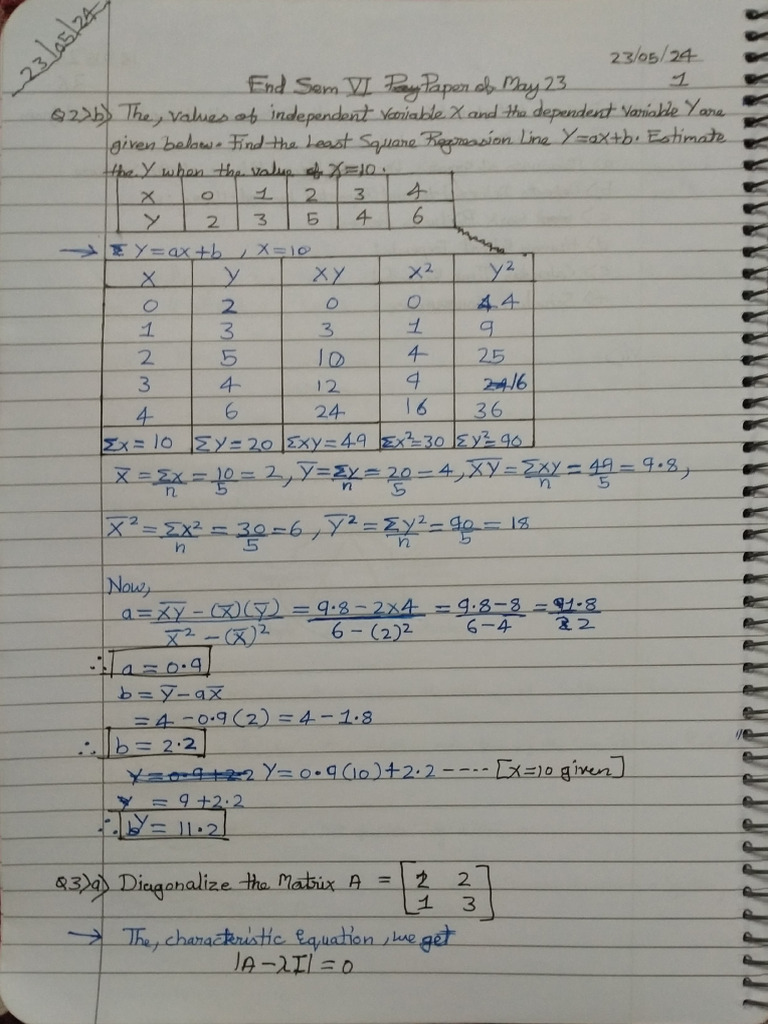 23/05/24
23/05/24
End Sem VI Paper of May 23
1
Q2>b) The, values of independent variable X and the dependent variable Y are
given below. Find the Least Square Regression Line Y=ax+b. Estimate
the Y when the value of X=10.
X 0 1 2 3 4
Y 2 3 5 4 6
→ Y=ax+b , X=10
X Y XY X² Y²
0 2 0 0 4
1 3 3 1 9
2 5 10 4 25
3 4 12 9 16
4 6 24 16 36
Σx=10 ΣY=20 Σxy=49 Σx²=30 Σy²=90
X̅ = Σx/n = 10/5 = 2, Y̅ = Σy/n = 20/5 = 4, X̅Y̅ = Σxy/n = 49/5 = 9.8,
X̅² = Σx²/n = 30/5 = 6, Y̅² = Σy²/n = 90/5 = 18
Now,
a = X̅Y̅ - (X̅)(Y̅) / X̅² - (X̅)² = 9.8 - 2x4 / 6 - (2)² = 9.8 - 8 / 6 - 4 = 1.8 / 2
∴ a = 0.9
b = Y̅ - aX̅
= 4 - 0.9(2) = 4 - 1.8
∴ b = 2.2
Y = 0.9+2.2 Y = 0.9(10)+2.2 ---- [X=10 given]
= 9+2.2
∴ Y = 11.2
Q3>a) Diagonalize the Matrix A = [2 2
1 3]
→ The, characteristic Equation, we get
|A-λI| = 0